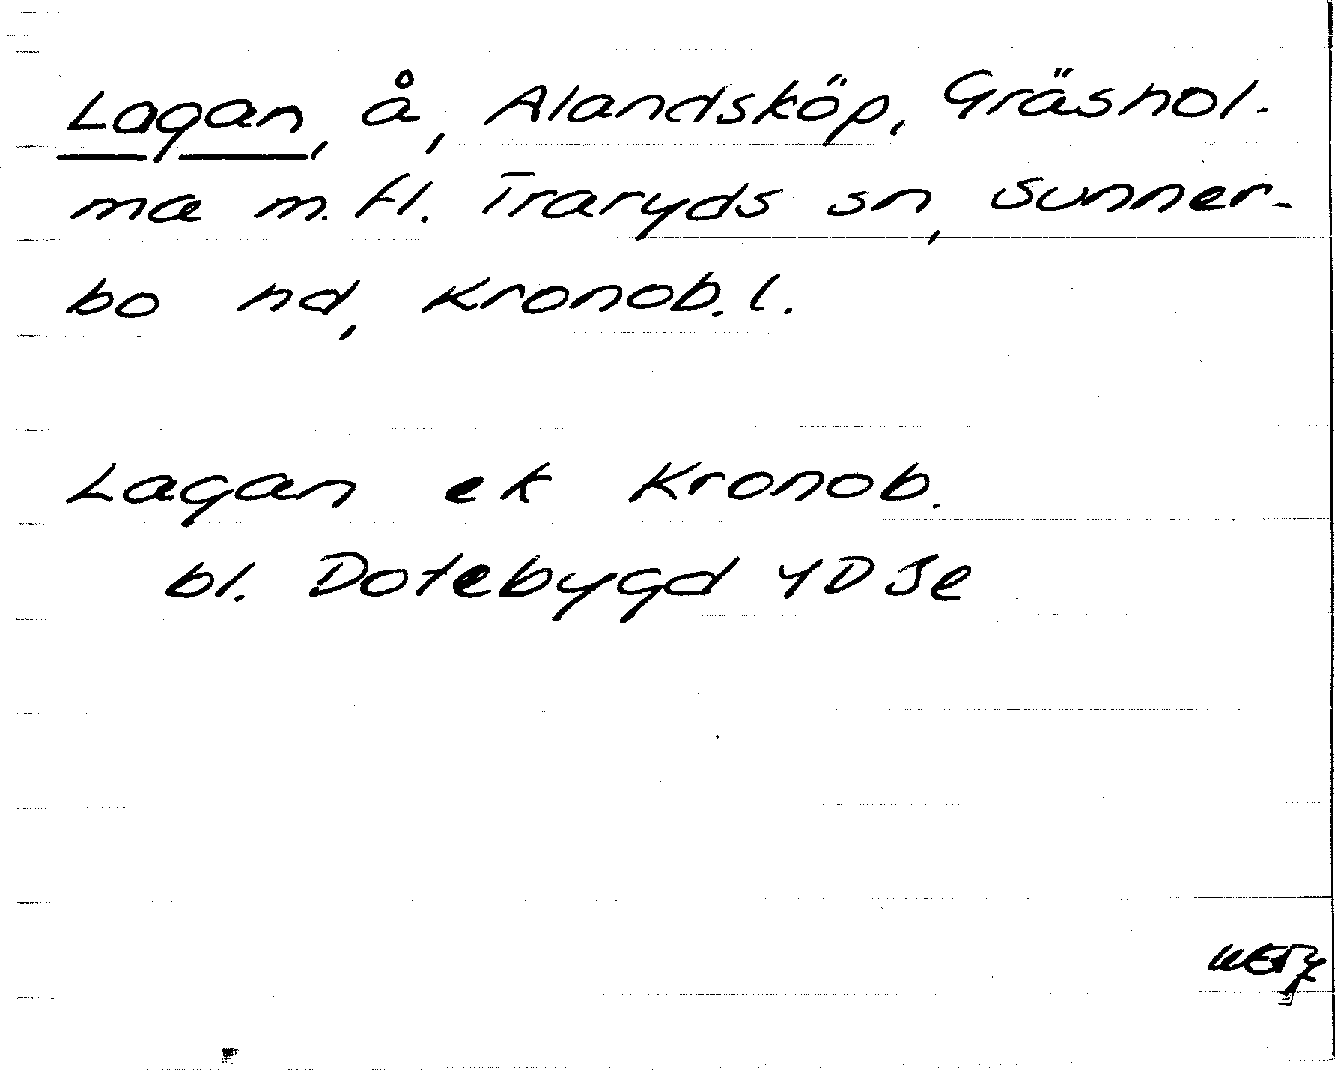 Lagan, å, Alandsköp, Gräshol-
ma m.fl. Traryds sn, Sunner-
bo hd, Kronob. l.
Lagan ek Kronob.
bl. Dotebygd 4D 5e